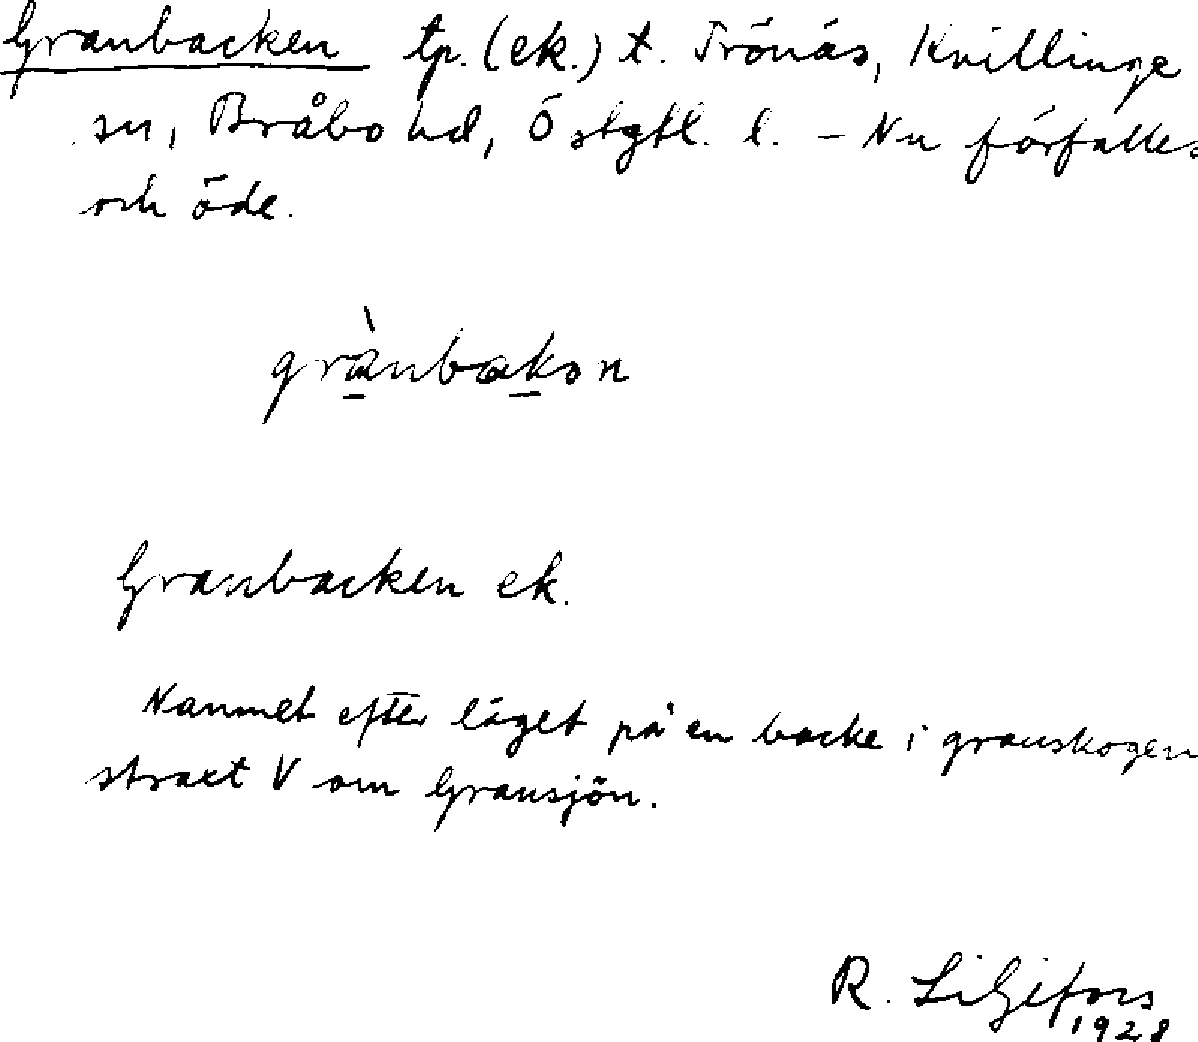 Granbacken tp. (ek.) t. Trönäs, Kvillinge
sn, Bråbo hd, Östgtl. l. – Nu förfallet
och öde.
grànbakən
Granbacken ek.
Namnet efter läget på en backe i granskogen
straxt V om Gransjön.
R. Liljefors
1928